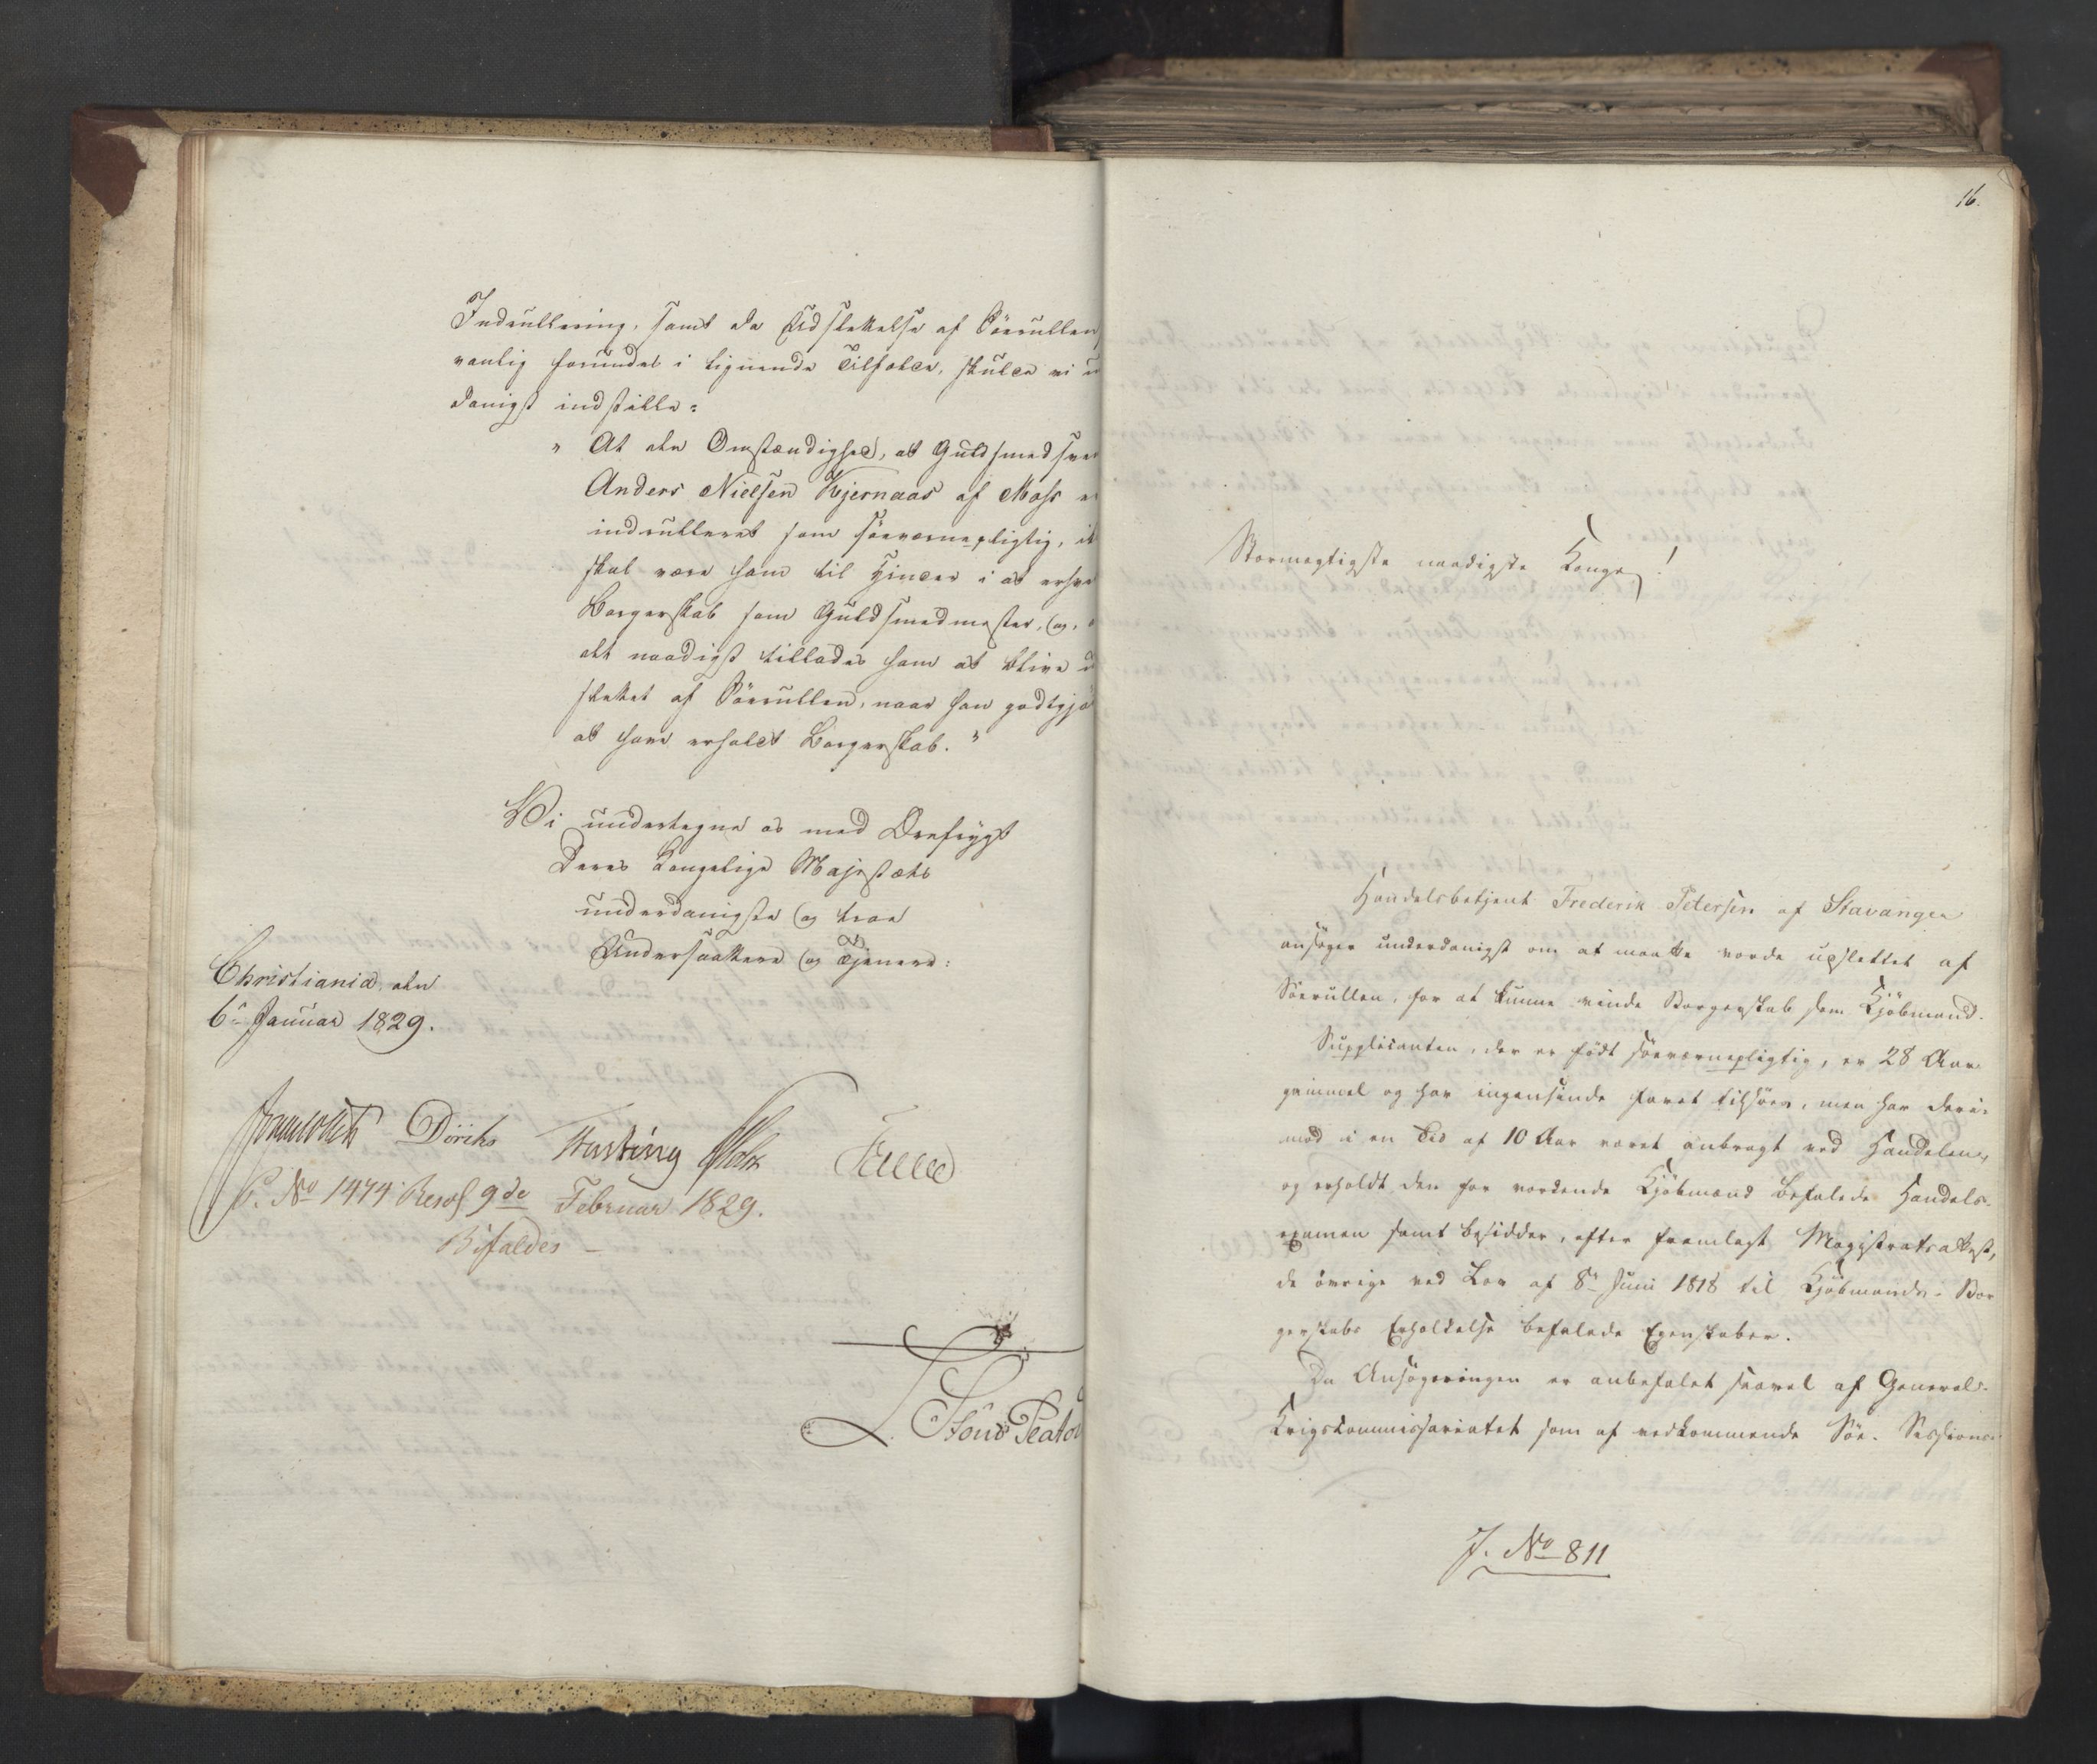 Indrullering, samt da Udslettelse af Söerullen
vanlig forundes i lignende Tilfælde, skulde vi u
danigst indstille:
" At den Omstændighed, at Guldsmedsven
Anders Nielsen Kjernaas af Moss er
indrulleret som söeværnepligtig, ik
skal være ham til Hinder i at erhve
Borgerskab som Guldsmedmester, og,
det naadigst tillades ham at blive u
slettet af Söerullen, naar han godtgjö
at have erholdt Borgerskab. "
Vi undertegne os med Ærefrygt
Deres Kongelige Majestæts
underdanigste og troe
Undersaatter og Tjenere:
Christiania, den
6te Januar 1829.
Diriks
Fasting
Holst
P. No 1474. Resol. 9de Februar 1829.
Bifaldes –
16.
Stormægtigste naadigste Konge!
Handelsbetjent Frederik Petersen af Stavanger
ansöger underdanigst om at maatte vorde udslettet af
Söerullen, for at kunne vinde Borgerskab som Kjöbmand.
Supplicanten, der er födt söeværnepligtig, er 28 Aar
gammel og har ingensinde faret tilsöes, men har deri-
mod i en Tid af 10 Aar været anbragt ved Handelen,
og erholdt den for vordende Kjöbmænd befalede Handels-
examen samt besidder, efter fremlagt Magistratsattest,
de övrige ved Lov af 8de Juni 1818 til Kjöbmands-Bor
gerskabs Erholdelse befalede Egenskaber.
Da Ansögningen er anbefalet saavel af General-
Krigskommissariatet som af vedkommende Söe-Sessions-
J. No 811